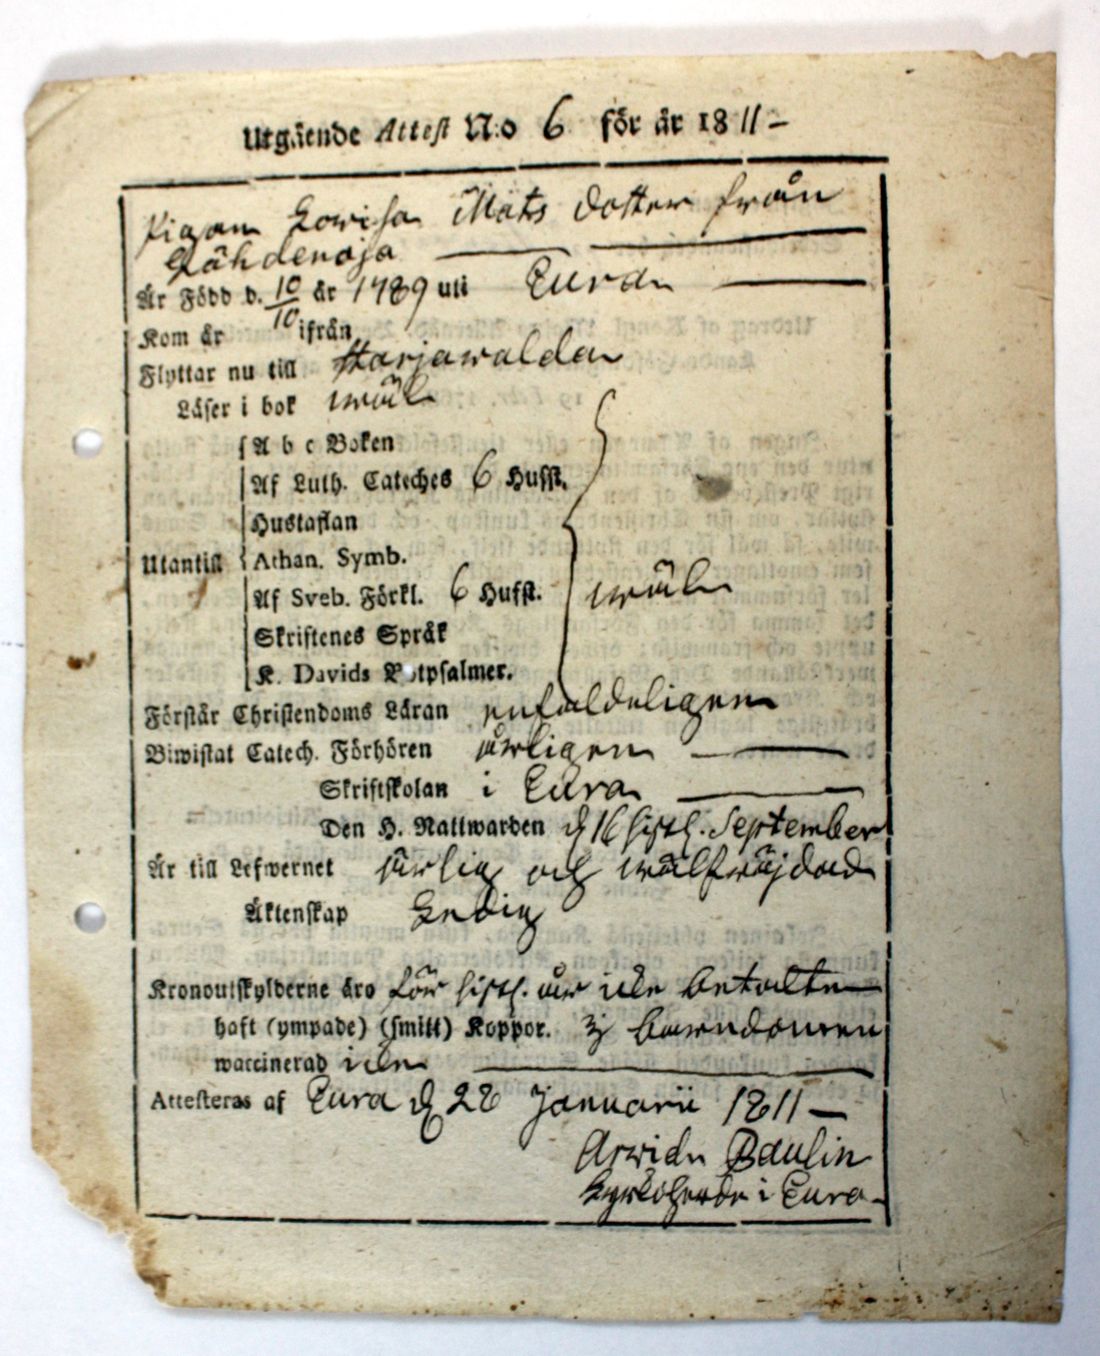 Utgående Attest N:o 6 för år 1811 –
Pigan Lovisa Mats dotter från
Lähdenoja
Är Född d. 10/10 år 1789 uti Eura
Kom år ifrån
Flyttar nu till Harjawalda
Läser i bok wäl
A b c Boken
Af Luth. Cateches 6 Hufst.
Hustaflan
Utantill Athan. Symb.
Af Sveb. Förkl. 6 Hufst. wäl
Skriftenes Språk
K. Davids Botpsalmer.
Förstår Christendoms Läran enfaldeligen
Biwistat Catech. Förhören årligen
Skriftskolan i Eura
Den H. Nattwarden d 16 sistl. September
Är till Lefwernet ärlig och wälfräjdad
Äktenskap Ledig
Kronoutskylderne äro för sistl. år icke betalte
haft (ympade) (smitt) Koppor. i barndomen
waccinerad icke
Attesteras af Eura d 28 Januarii 1811 –
Arwid Paulin
Kyrkoherde i Eura